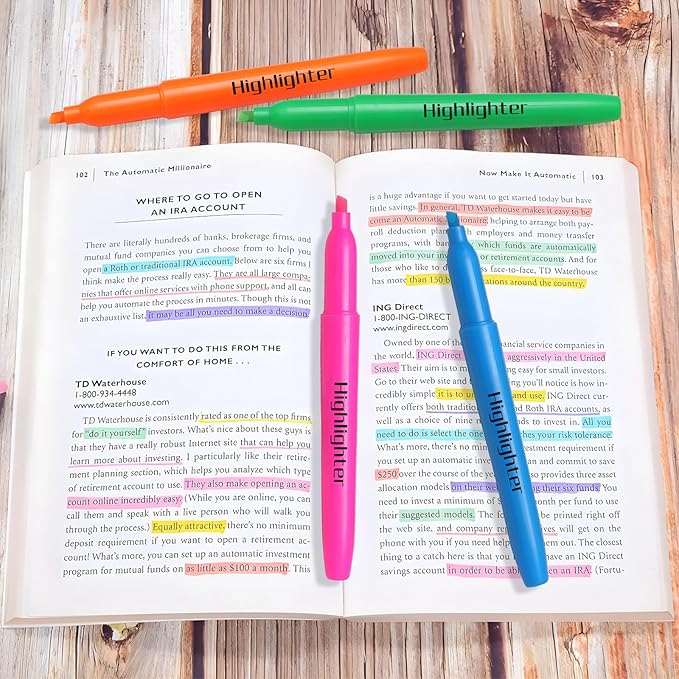 Highlighter
Highlighter
102 The Automatic Millionaire
WHERE TO GO TO OPEN
AN IRA ACCOUNT
There are literally hundreds of banks, brokerage firms, and
mutual fund companies you can choose from to help you
open a Roth or traditional IRA account. Below are six firms I
think make the process really easy. They are all large compa-
nies that offer online services with phone support, and all can
help you automate the process in minutes. Though this is not
an exhaustive list, it may be all you need to make a decision
IF YOU WANT TO DO THIS FROM THE
COMFORT OF HOME . . .
TD Waterhouse
1-800-934-4448
www.tdwaterhouse.com
TD Waterhouse is consistently rated as one of the top firms
for "do it yourself" investors. What's nice about these guys is
that they have a really robust Internet site that can help you
learn more about investing. I particularly like their retire-
ment planning section, which helps you analyze which type
of retirement account to use. They also make opening an ac-
count online incredibly easy. (While you are online, you can
call them and speak with a live person who will walk you
through the process.) Equally attractive, there's no minimum
deposit requirement if you want to open a retirement ac-
count! What's more, you can set up an automatic investment
program for mutual funds on as little as $100 a month. This
Highlighter
Now Make It Automatic 103
is a huge advantage if you want to get started today but have
little savings. In general, TD Waterhouse makes it easy to be-
come an Automatic, helping to arrange both pay-
roll deduction with employers and money transfer
programs, with which funds are automatically
moved into your or retirement accounts. And for
those who like to do face-to-face, TD Waterhouse
has more than 150 around the country.
ING Direct
1-800-ING-DIRECT
www.ingdirect.com
Owned by one of the financial service companies in
the world, ING Direct aggressively in the United
States. Their aim is to easy for small investors.
Go to their web site and you'll notice is how in-
credibly simple it is to and use. ING Direct cur-
rently offers both traditional Roth IRA accounts, as
well as a choice of nine to invest in. All you
need to do is select the one your risk tolerance.
What's more, there's no investment requirement if
you set up an automatic and commit to save
$250 over the course of the provides three asset
allocation models on their their six funds. You
need to invest a minimum of month per fund to use
their suggested models. The be printed right off
the web site, and company will get on the
phone with you if you need them out. The closest
thing to a catch here is that have an ING Direct
savings account in order to be an IRA. (Fortu-
Highlighter